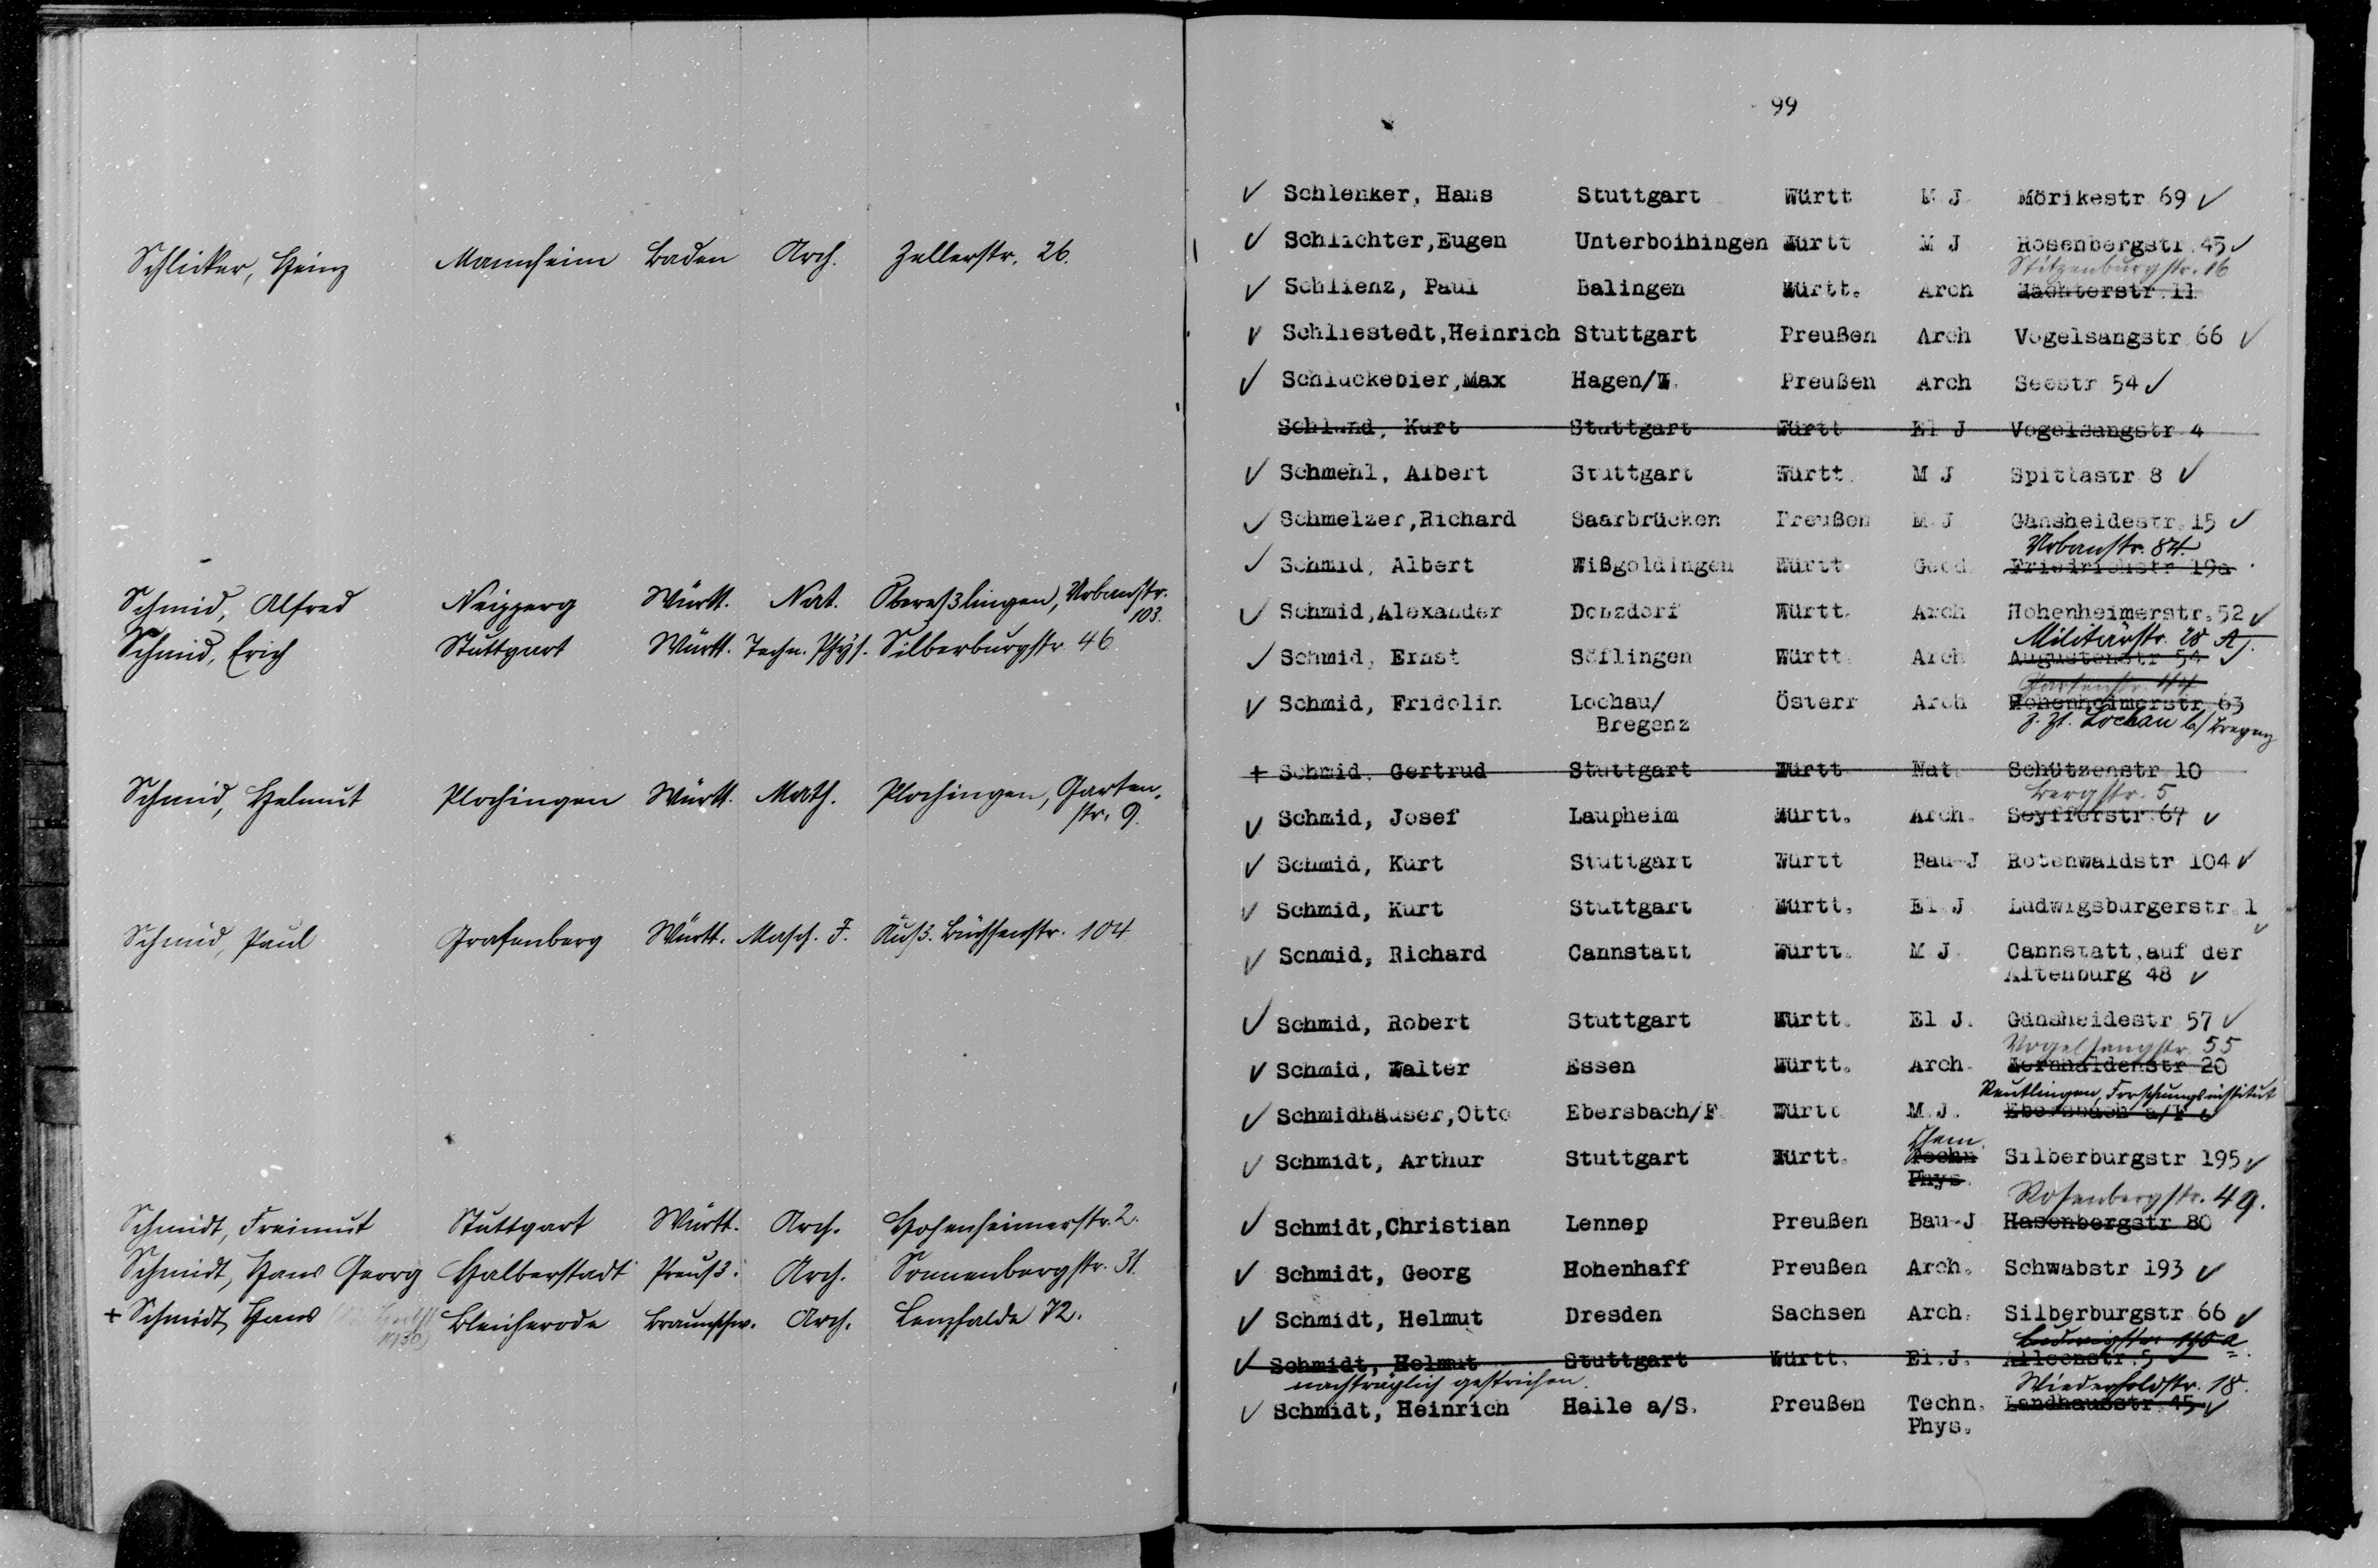 Schlicker, Heinz Mannheim Baden Arch. Zellerstr. 26.
Schmid, Alfred Neipperg Württ. Nat. Obereßlingen, Urbanstr.
103.
Schmid, Erich Stuttgart Württ. Techn. Phys. Silberburgstr. 46
Schmid, Helmut Plochingen Württ. Math. Plochingen, Garten-
str. 9.
Schmid, Paul Grafenberg Württ. Masch. J. Äuß. Büchsenstr. 104
Schmidt, Freimut Stuttgart Württ. Arch. Hohenheimerstr. 2.
Schmidt, Hans Georg Halberstadt Preuß. Arch. Sonnenbergstr. 31.
+ Schmidt, Hans Bleicherode Braunschw. Arch. Lenzhalde 72.
1930)
99
✓ Schlenker, Hans Stuttgart Württ M J. Mörikestr 69 ✓
✓ Schlichter,Eugen Unterboihingen Württ M J Rosenbergstr 45 ✓
Stitzenburgstr. 16
✓ Schlienz, Paul Balingen Württ. Arch Wächterstr. 11
✓ Schliestedt,Heinrich Stuttgart Preußen Arch Vogelsangstr 66 ✓
✓ Schluckebier,Max Hagen/W. Preußen Arch Seestr 54 ✓
Schlund, Kurt Stuttgart Württ El J Vogelsangstr 4
✓ Schmehl, Albert Stuttgart Württ. M J Spittastr 8 ✓
✓ Schmelzer,Richard Saarbrücken Preußen M.J Gänsheidestr. 15 ✓
Urbanstr. 84.
✓ Schmid, Albert Wißgoldingen Württ Geod. Friedrichstr 19a
✓ Schmid,Alexander Donzdorf Württ. Arch Hohenheimerstr. 52 ✓
Militärstr. 28 A.
✓ Schmid, Ernst Söflingen Württ. Arch Augustenstr 54 ✓
Gartenstr. 44
✓ Schmid, Fridolin Lochau/ Österr Arch Hohenheimerstr. 63
Bregenz z. Zt. Lochau b/ Bregenz
+ Schmid, Gertrud Stuttgart Württ Nat. Schützenstr 10
Bergstr. 5
✓ Schmid, Josef Laupheim Württ. Arch. Seyfferstr. 67 ✓
✓ Schmid, Kurt Stuttgart Württ Bau-J Rotenwaldstr 104 ✓
✓ Schmid, Kurt Stuttgart Württ. El J Ludwigsburgerstr. 1 ✓
✓ Schmid, Richard Cannstatt Württ. M J. Cannstatt,auf der
Altenburg 48 ✓
✓ Schmid, Robert Stuttgart Württ. El J. Gänsheidestr 57 ✓
Vogelsangstr. 55
✓ Schmid, Walter Essen Württ. Arch. Hornhaldenstr 20
Reutlingen, Forschungsinstitut
✓ Schmidhäuser,Otto Ebersbach/F Württ M.J. Ebersbach a/F ✓
Chem.
✓ Schmidt, Arthur Stuttgart Württ. Techn Silberburgstr 195 ✓
Phys.
Rosenbergstr. 49.
✓ Schmidt,Christian Lennep Preußen Bau-J Hasenbergstr 80
✓ Schmidt, Georg Hohenhaff Preußen Arch. Schwabstr 193 ✓
✓ Schmidt, Helmut Dresden Sachsen Arch. Silberburgstr 66 ✓
Ludwigstr. 110 a.
✓ Schmidt, Helmut Stuttgart Württ. El.J. Alleenstr. 5 ✓
nachträglich gestrichen. Wiederholdstr. 18.
✓ Schmidt, Heinrich Halle a/S. Preußen Techn. Landhausstr. 45 ✓
Phys.